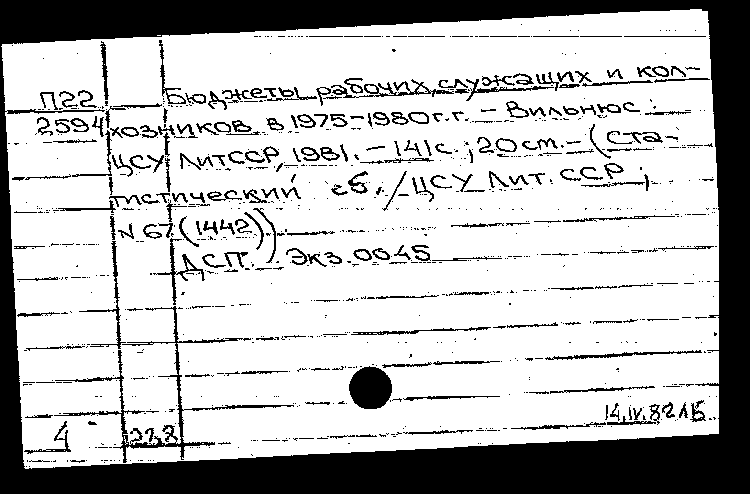 П22 Бюджеты рабочих, служащих и кол-
2594 хозников в 1975-1980 г.г. - Вильнюс:
ЦСУ ЛитССР, 1981. - 141 с.; 20 см. - (Ста-
тистический сб. / ЦСУ Лит. ССР;
N 67 (1442))
ДСП. Экз. 0045
14.IV.82
4 228